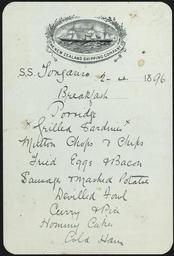 NEW ZEALAND SHIPPING COMPANY
S.S. Tongariro 2 - 4 1896
Breakfast
Porridge
Grilled Sardines
Mutton Chops & Chips
Fried Eggs & Bacon
Sausage & Mashed Potatoe
Devilled Fowl
Curry & Rice
Hominy Cakes
Cold Ham